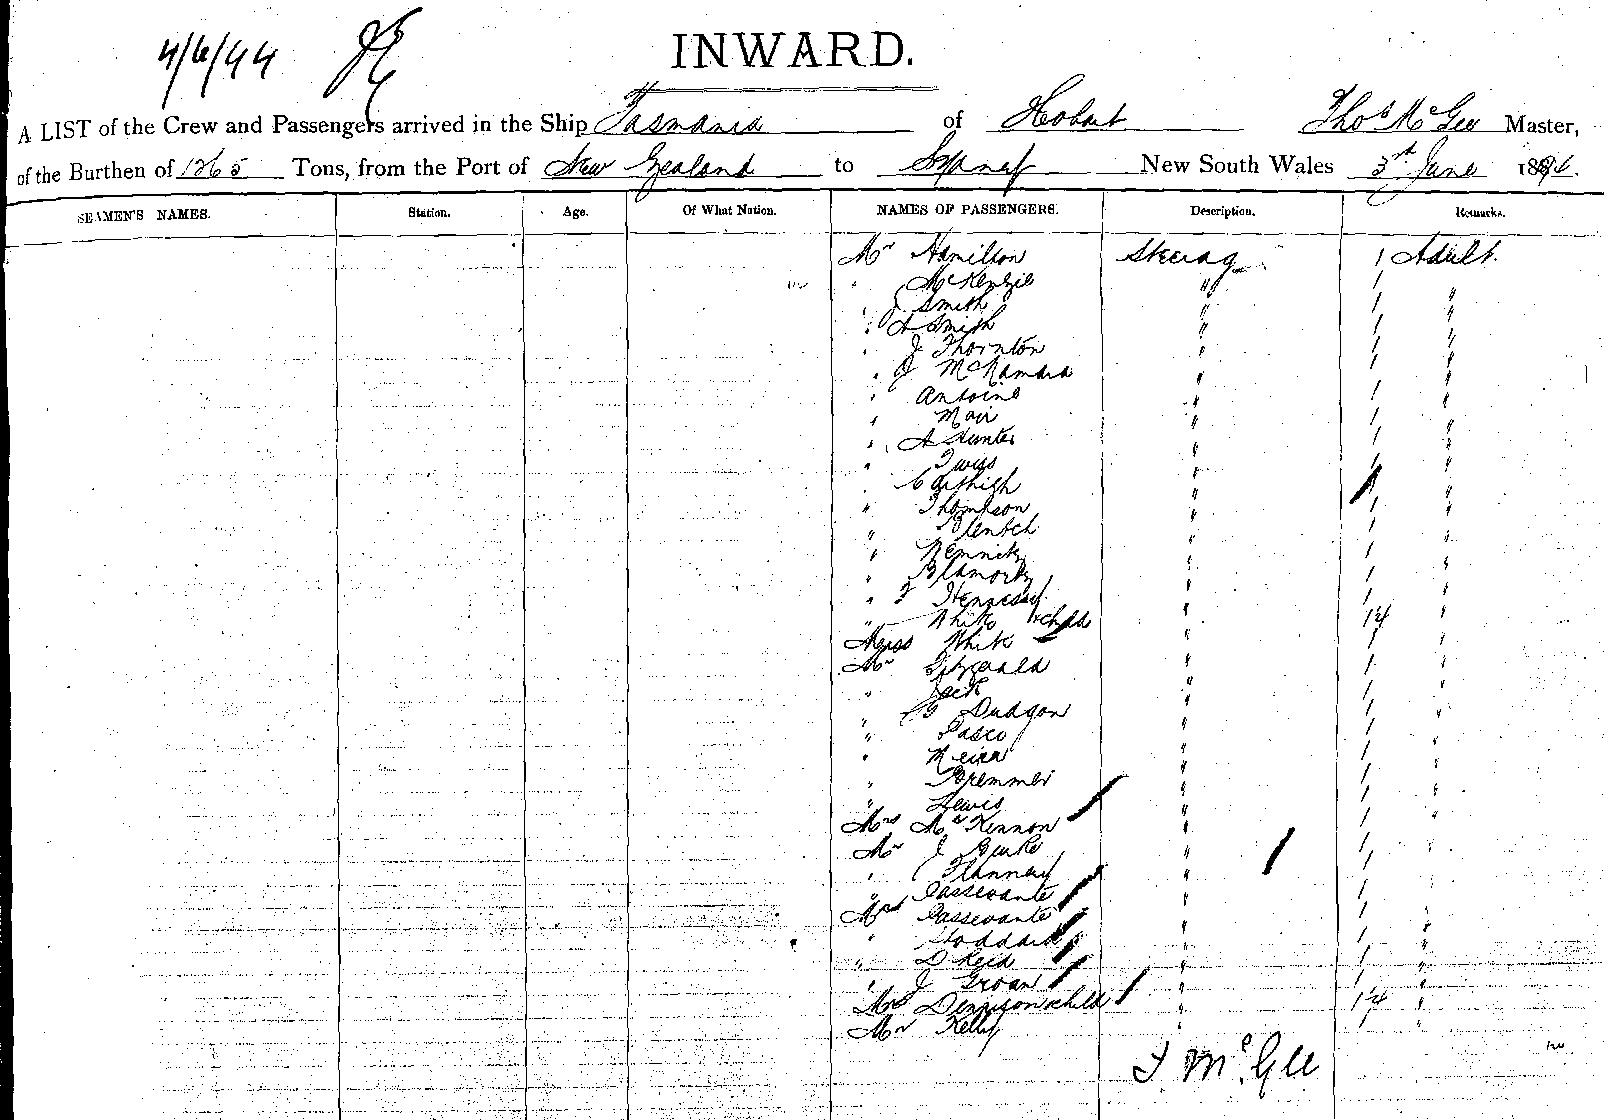 4/6/94 JE
INWARD.
A LIST of the Crew and Passengers arrived in the Ship Tasmania of Hobart Thos McGee Master,
of the Burthen of 1265 Tons, from the Port of New Zealand to Sydney New South Wales 3rd June 1894.
SEAMEN'S NAMES. Station. Age. Of What Nation. NAMES OF PASSENGERS. Description. Remarks.
Mr Hamilton Steerag 1 Adult.
" McKenzie " 1 "
" J Smith " 1 "
" A Smith " 1 "
" J Thornton " 1 "
" J McNamara " 1 "
" Antoine " 1 "
" Mair " 1 "
" A Hunter " 1 "
" Twiss " 1 "
" " 1 "
" Thompson " 1 "
" " 1 "
" " 1 "
" " 1 "
" Hennessy " 1 "
" White & child " 1 1/4 "
Miss White " 1 "
Mr Fitzgerald " 1 "
" Jack " 1 "
" G Dudgon " 1 "
" Pasco " 1 "
" " 1 "
" Bremmer " 1 "
" Lewis " 1 "
Mrs McKennon " 1 "
Mr J Burke " 1 "
" Flannery " 1 "
" Passevante " 1 "
Mrs Passevante " 1 "
" Stoddard " 1 "
" D Reid " 1 "
" J Groan " 1 "
Mrs Dennison & child " 1 1/4 "
Mr Kelly " 1 "
T. McGee